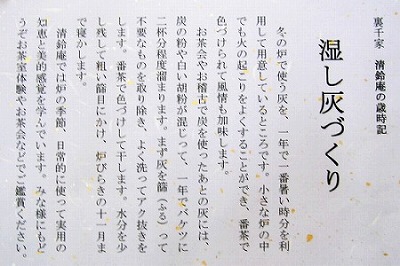 裏千家　清鈴庵の歳時記
湿し灰づくり
冬の炉で使う灰を、一年で一番暑い時分を利
用して用意しているところです。小さな炉の中
でも火の起こりをよくすることができ、番茶で
色づけられて風情も加味します。
お茶会やお稽古で炭を使ったあとの灰には、
炭の粉や白い胡粉が混じって、一年でバケツに
二杯分程度溜まります。まず灰を篩（ふる）って
不要なものを取り除き、よく洗ってアク抜きを
します。番茶で色づけして干します。水分を少
し残して粗い篩目にかけ、炉びらきの十一月ま
で寝かします。
清鈴庵では炉の季節、日常的に使って実用の
知恵と美的感覚を学んでいます。みな様にもど
うぞお茶室体験やお茶会などでご鑑賞ください。